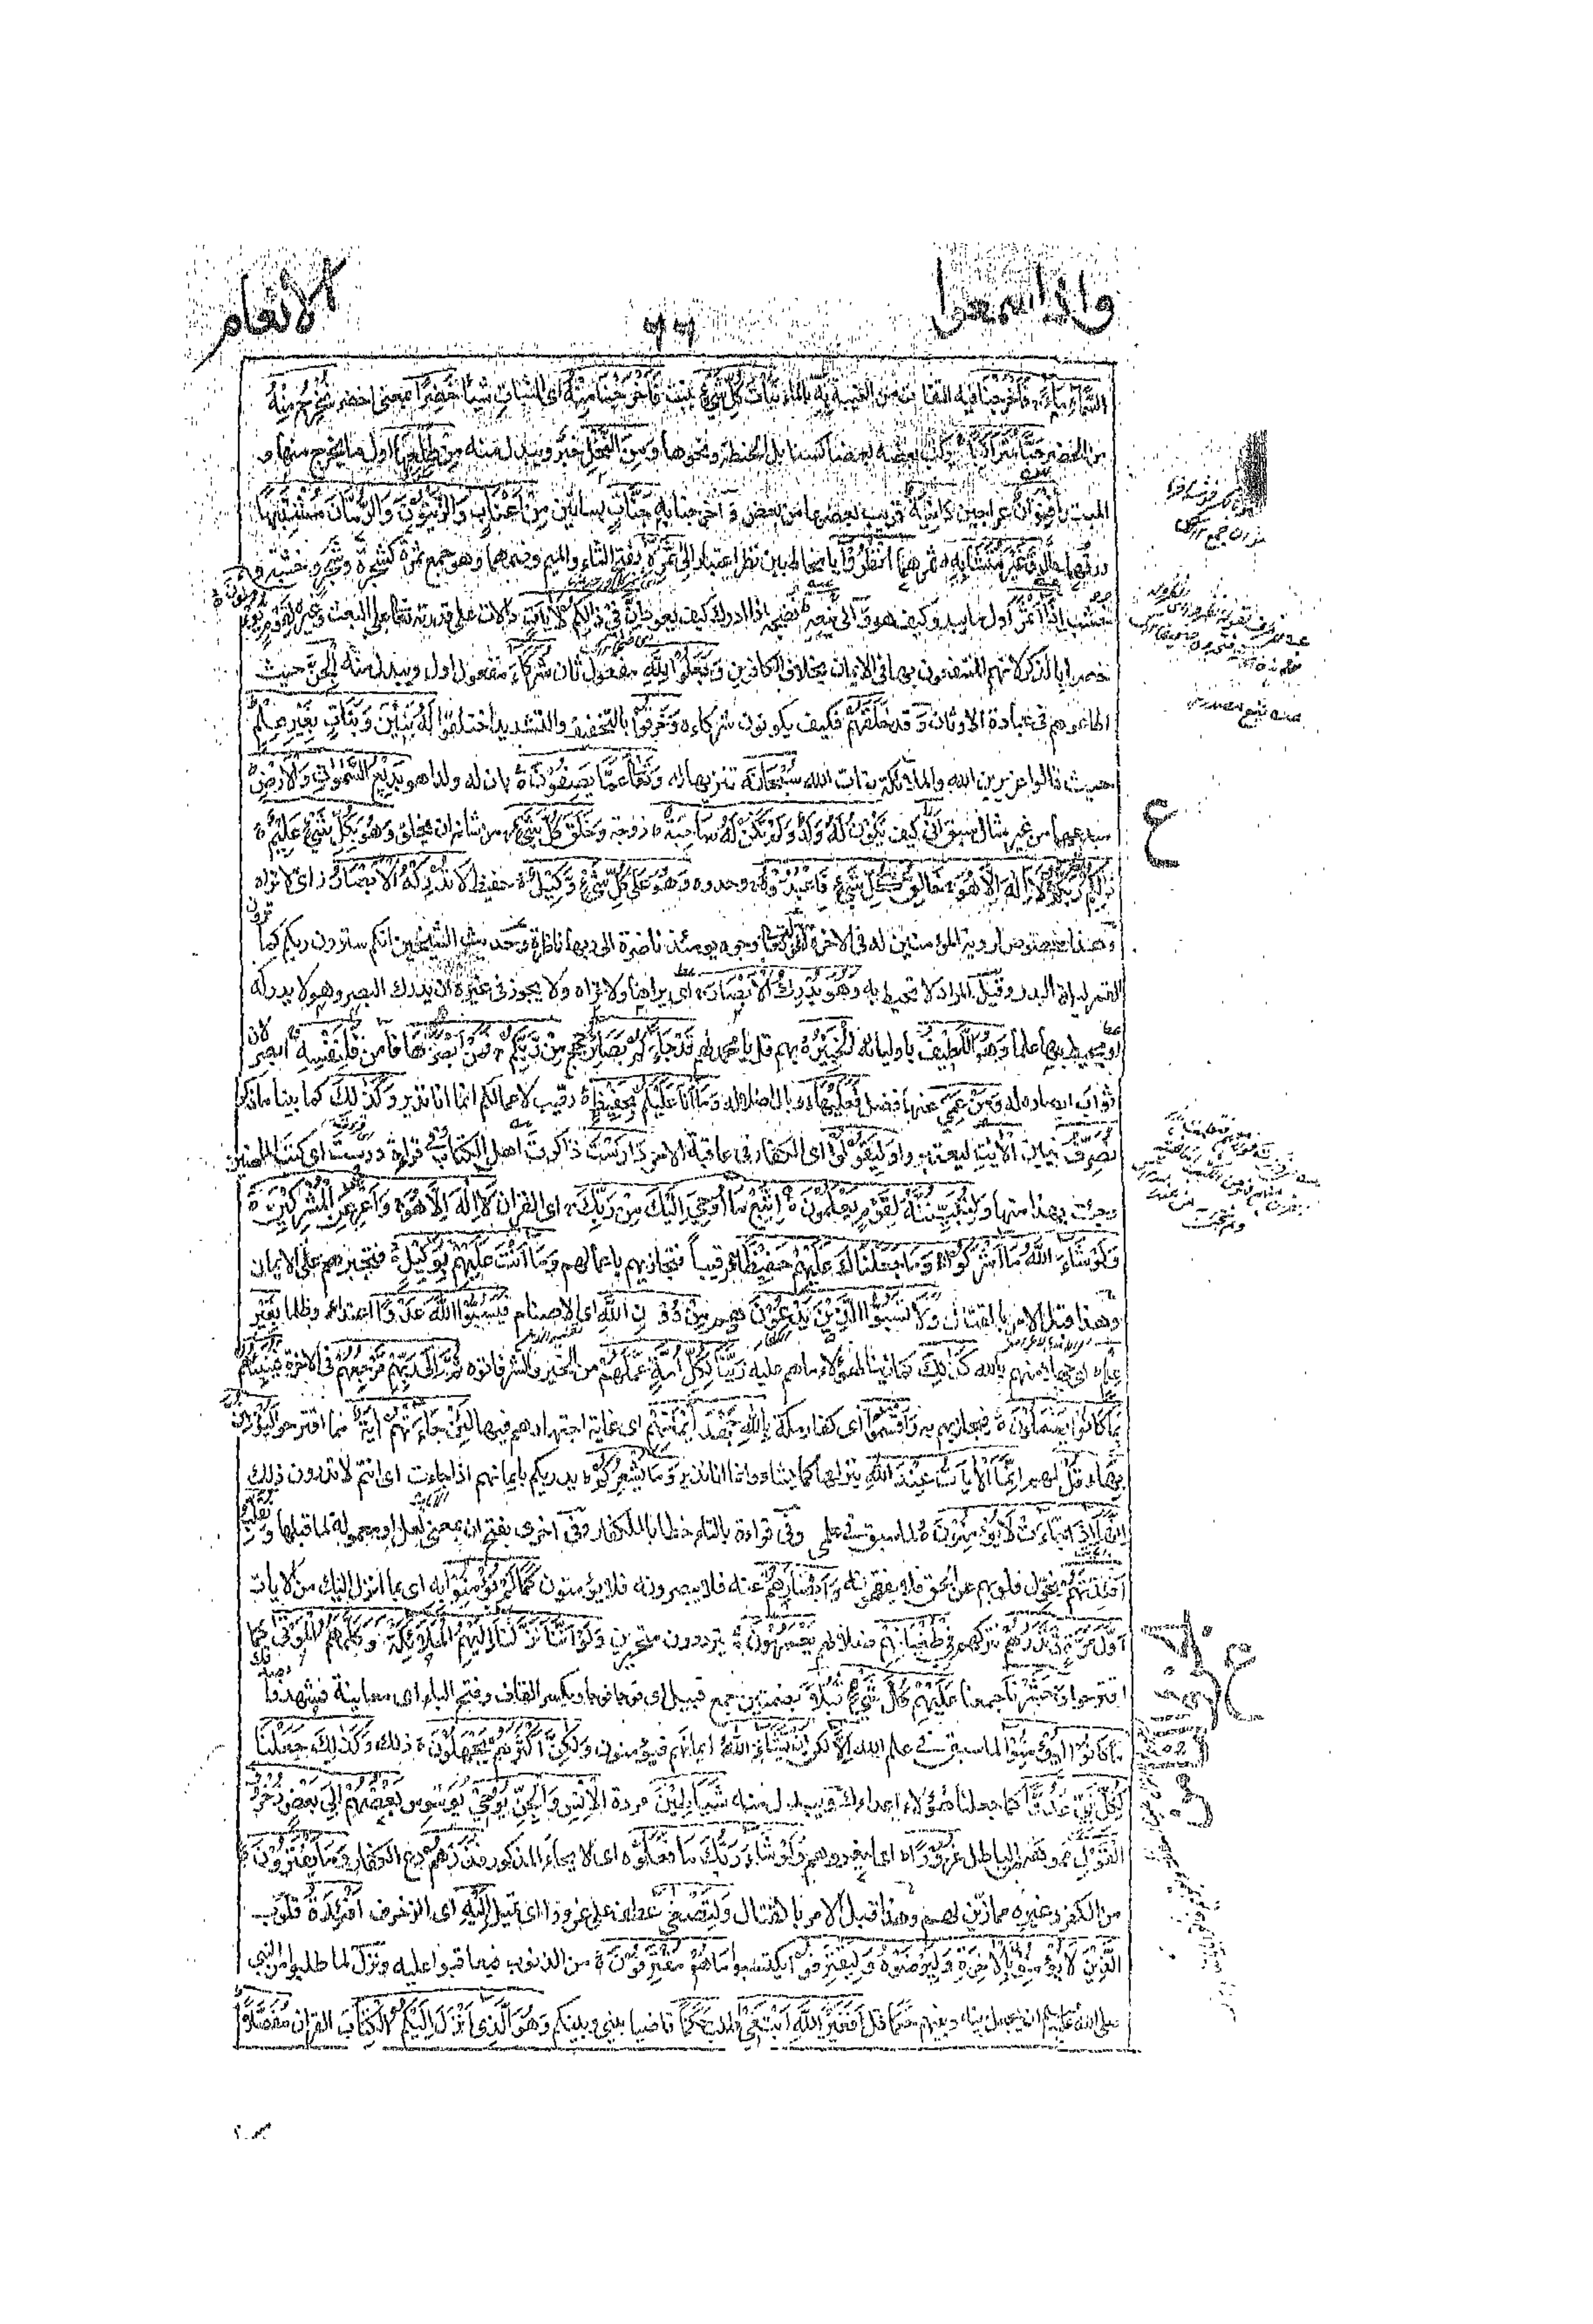 واذا سمعوا
٦٦
الانعام
السَّمَاءِ مَاءً فَاَخْرَجْنَا فيه التفات من الغيبة بِهٖ بالماء نَبَاتَ كُلِّ شَيْءٍ ينبت فَاَخْرَجْنَا مِنْهُ اى النبات شيئا خَضِرًا بمعنى اخضر نُخْرِجُ مِنْهُ
من الخضر حَبًّا مُتَرَاكِبًا يركب بعضه بعضا كسنابل الحنطة ونحوها وَمِنَ النَّخْلِ خبر ويبدل منه مِنْ طَلْعِهَا اول ما يخرج منها و
المبتدأ قِنْوَانٌ عراجين دَانِيَةٌ قريب بعضها من بعض وَ اخرجنا به جَنّٰتٍ بساتين مِنْ اَعْنَابٍ وَالزَّيْتُوْنَ وَالرُّمَّانَ مُشْتَبِهًا
ورقهما حال وَغَيْرَ مُتَشَابِهٍ ثمرهما اُنْظُرُوْا يا مخاطبين نظر اعتبار اِلٰى ثَمَرِهٖ بفتح الثاء والميم وضمهما وهو جمع ثمرة كشجرة وشجر وخشبة و
خشب اِذَا اَثْمَرَ اول ما يبدو كيف هو وَ الى يَنْعِهٖ نضجه اذا ادرك كيف يعود اِنَّ فِيْ ذٰلِكُمْ لَاٰيٰتٍ دلالات على قدرته تعالى على البعث وغيره لِقَوْمٍ يُؤْمِنُوْنَ
خصوا بالذكر لانهم المنتفعون بها فى الايمان بخلاف الكافرين وَجَعَلُوْا لِلّٰهِ مفعول ثان شُرَكَاءَ مفعول اول ويبدل منه الْجِنَّ حيث
اطاعوهم فى عبادة الاوثان وَ قد خَلَقَهُمْ فكيف يكونون شركاءه وَخَرَقُوْا بالتخفيف والتشديد اختلقوا لَهٗ بَنِيْنَ وَبَنَاتٍ بِغَيْرِ عِلْمٍ
حيث قالوا عزير بن الله والملائكة بنات الله سُبْحَانَهٗ تنزيها له وَتَعَالٰى عَمَّا يَصِفُوْنَ بان له ولدا هو بَدِيْعُ السَّمٰوٰتِ وَالْاَرْضِ
مبدعهما من غير مثال سبق اَنّٰى كيف يَكُوْنُ لَهٗ وَلَدٌ وَلَمْ تَكُنْ لَهٗ صَاحِبَةٌ زوجة وَخَلَقَ كُلَّ شَيْءٍ من شانه ان يخلق وَهُوَ بِكُلِّ شَيْءٍ عَلِيْمٌ
ذٰلِكُمُ اللّٰهُ رَبُّكُمْ لَا اِلٰهَ اِلَّا هُوَ خَالِقُ كُلِّ شَيْءٍ فَاعْبُدُوْهُ وحدوه وَهُوَ عَلٰى كُلِّ شَيْءٍ وَكِيْلٌ حفيظ لَا تُدْرِكُهُ الْاَبْصَارُ اى لا تراه
وهذا مخصوص لرؤية المؤمنين له فى الاخرة لقوله تعالى وجوه يومئذ ناضرة الى ربها ناظرة وحديث الشيخين انكم سترون ربكم كما ترون
القمر ليلة البدر وقيل المراد لا تحيط به وَهُوَ يُدْرِكُ الْاَبْصَارَ اى يراها ولا تراه ولا يجوز فى غيره ان يدرك البصر وهو لا يدركه
او يحيط بها علما وَهُوَ اللَّطِيْفُ باوليائه الْخَبِيْرُ بهم قل يا محمد لهم قَدْ جَاءَكُمْ بَصَائِرُ حجج مِنْ رَبِّكُمْ فَمَنْ اَبْصَرَ ها فامن فَلِنَفْسِهٖ ابصر لان
ثواب ابصاره له وَمَنْ عَمِيَ عنها فضل فَعَلَيْهَا وبال اضلاله وَمَا اَنَا عَلَيْكُمْ بِحَفِيْظٍ رقيب لاعمالكم انما انا نذير وَكَذٰلِكَ كما بينا ما ذكر
نُصَرِّفُ نبين الْاٰيٰتِ ليعتبروا وَلِيَقُوْلُوْا اى الكفار فى عاقبة الامر دَارَسْتَ ذاكرت اهل الكتاب وفى قراءة درست اى كتب الماضين
وجئت بهذا منها وَلِنُبَيِّنَهٗ لِقَوْمٍ يَعْلَمُوْنَ اِتَّبِعْ مَا اُوْحِيَ اِلَيْكَ مِنْ رَبِّكَ اى القران لَا اِلٰهَ اِلَّا هُوَ وَاَعْرِضْ عَنِ الْمُشْرِكِيْنَ
وَلَوْ شَاءَ اللّٰهُ مَا اَشْرَكُوْا وَمَا جَعَلْنَاكَ عَلَيْهِمْ حَفِيْظًا رقيبا فتجازيهم باعمالهم وَمَا اَنْتَ عَلَيْهِمْ بِوَكِيْلٍ فتجبرهم على الايمان
وهذا قبل الامر بالقتال وَلَا تَسُبُّوا الَّذِيْنَ يَدْعُوْنَ هم مِنْ دُوْنِ اللّٰهِ اى الاصنام فَيَسُبُّوا اللّٰهَ عَدْوًا اعتداء وظلما بِغَيْرِ
عِلْمٍ اى جهل منهم بالله كَذٰلِكَ كما زينا لهؤلاء ما هم عليه زَيَّنَّا لِكُلِّ اُمَّةٍ عَمَلَهُمْ من الخير والشر فاتوه ثُمَّ اِلٰى رَبِّهِمْ مَرْجِعُهُمْ فى الاخرة فَيُنَبِّئُهُمْ
بِمَا كَانُوْا يَعْمَلُوْنَ فيجازيهم به وَاَقْسَمُوْا اى كفار مكة بِاللّٰهِ جَهْدَ اَيْمَانِهِمْ اى غاية اجتهادهم فيها لَئِنْ جَاءَتْهُمْ اٰيَةٌ مما اقترحوا لَيُؤْمِنُنَّ
بِهَا قُلْ لهم اِنَّمَا الْاٰيَاتُ عِنْدَ اللّٰهِ ينزلها كما يشاء وانما انا نذير وَمَا يُشْعِرُكُمْ يدريكم بايمانهم اذا جاءت اى انتم لا تدرون ذلك
اِنَّهَا اِذَا جَاءَتْ لَا يُؤْمِنُوْنَ لما سبق فى علمى وفى قراءة بالتاء خطابا للكفار وفى اخرى بفتح ان بمعنى لعل او معمولة لما قبلها وَنُقَلِّبُ
اَفْئِدَتَهُمْ نحول قلوبهم عن الحق فلا يفقهونه وَاَبْصَارَهُمْ عنه فلا يبصرونه فلا يؤمنون كَمَا لَمْ يُؤْمِنُوْا بِهٖ اى بما انزل اليك من الايات
اَوَّلَ مَرَّةٍ وَنَذَرُهُمْ نتركهم فِيْ طُغْيَانِهِمْ ضلالهم يَعْمَهُوْنَ يترددون متحيرين وَلَوْ اَنَّنَا نَزَّلْنَا اِلَيْهِمُ الْمَلٰئِكَةَ وَكَلَّمَهُمُ الْمَوْتٰى كما
اقترحوا وَحَشَرْنَا جمعنا عَلَيْهِمْ كُلَّ شَيْءٍ قُبُلًا بضمتين جمع قبيل اى فوجا فوجا وبكسر القاف وفتح الباء اى معاينة فشهدوا بصدقك
مَا كَانُوْا لِيُؤْمِنُوْا لما سبق فى علم الله اِلَّا لكن اَنْ يَشَاءَ اللّٰهُ ايمانهم فيؤمنون وَلٰكِنَّ اَكْثَرَهُمْ يَجْهَلُوْنَ ذلك وَكَذٰلِكَ جَعَلْنَا
لِكُلِّ نَبِيٍّ عَدُوًّا كما جعلنا هؤلاء اعداءك ويبدل منه شَيَاطِيْنَ مردة الْاِنْسِ وَالْجِنِّ يُوْحِيْ يوسوس بَعْضُهُمْ اِلٰى بَعْضٍ زُخْرُفَ
الْقَوْلِ مموهه من الباطل غُرُوْرًا اى ليغروهم وَلَوْ شَاءَ رَبُّكَ مَا فَعَلُوْهُ اى الايحاء المذكور فَذَرْهُمْ دع الكفار وَمَا يَفْتَرُوْنَ
من الكفر وغيره مما زين لهم وهذا قبل الامر بالقتال وَلِتَصْغٰى عطف على غرورا اى تميل اِلَيْهِ اى الزخرف اَفْئِدَةُ قلوب
الَّذِيْنَ لَا يُؤْمِنُوْنَ بِالْاٰخِرَةِ وَلِيَرْضَوْهُ وَلِيَقْتَرِفُوْا يكتسبوا مَا هُمْ مُقْتَرِفُوْنَ من الذنوب فيعاقبوا عليه ونزل لما طلبوا من النبى
صلى الله عليه وسلم ان يجعل بينه وبينهم حكما قل اَفَغَيْرَ اللّٰهِ اَبْتَغِيْ اطلب حَكَمًا قاضيا بينى وبينكم وَهُوَ الَّذِيْ اَنْزَلَ اِلَيْكُمُ الْكِتَابَ القران مُفَصَّلًا
ع
ع